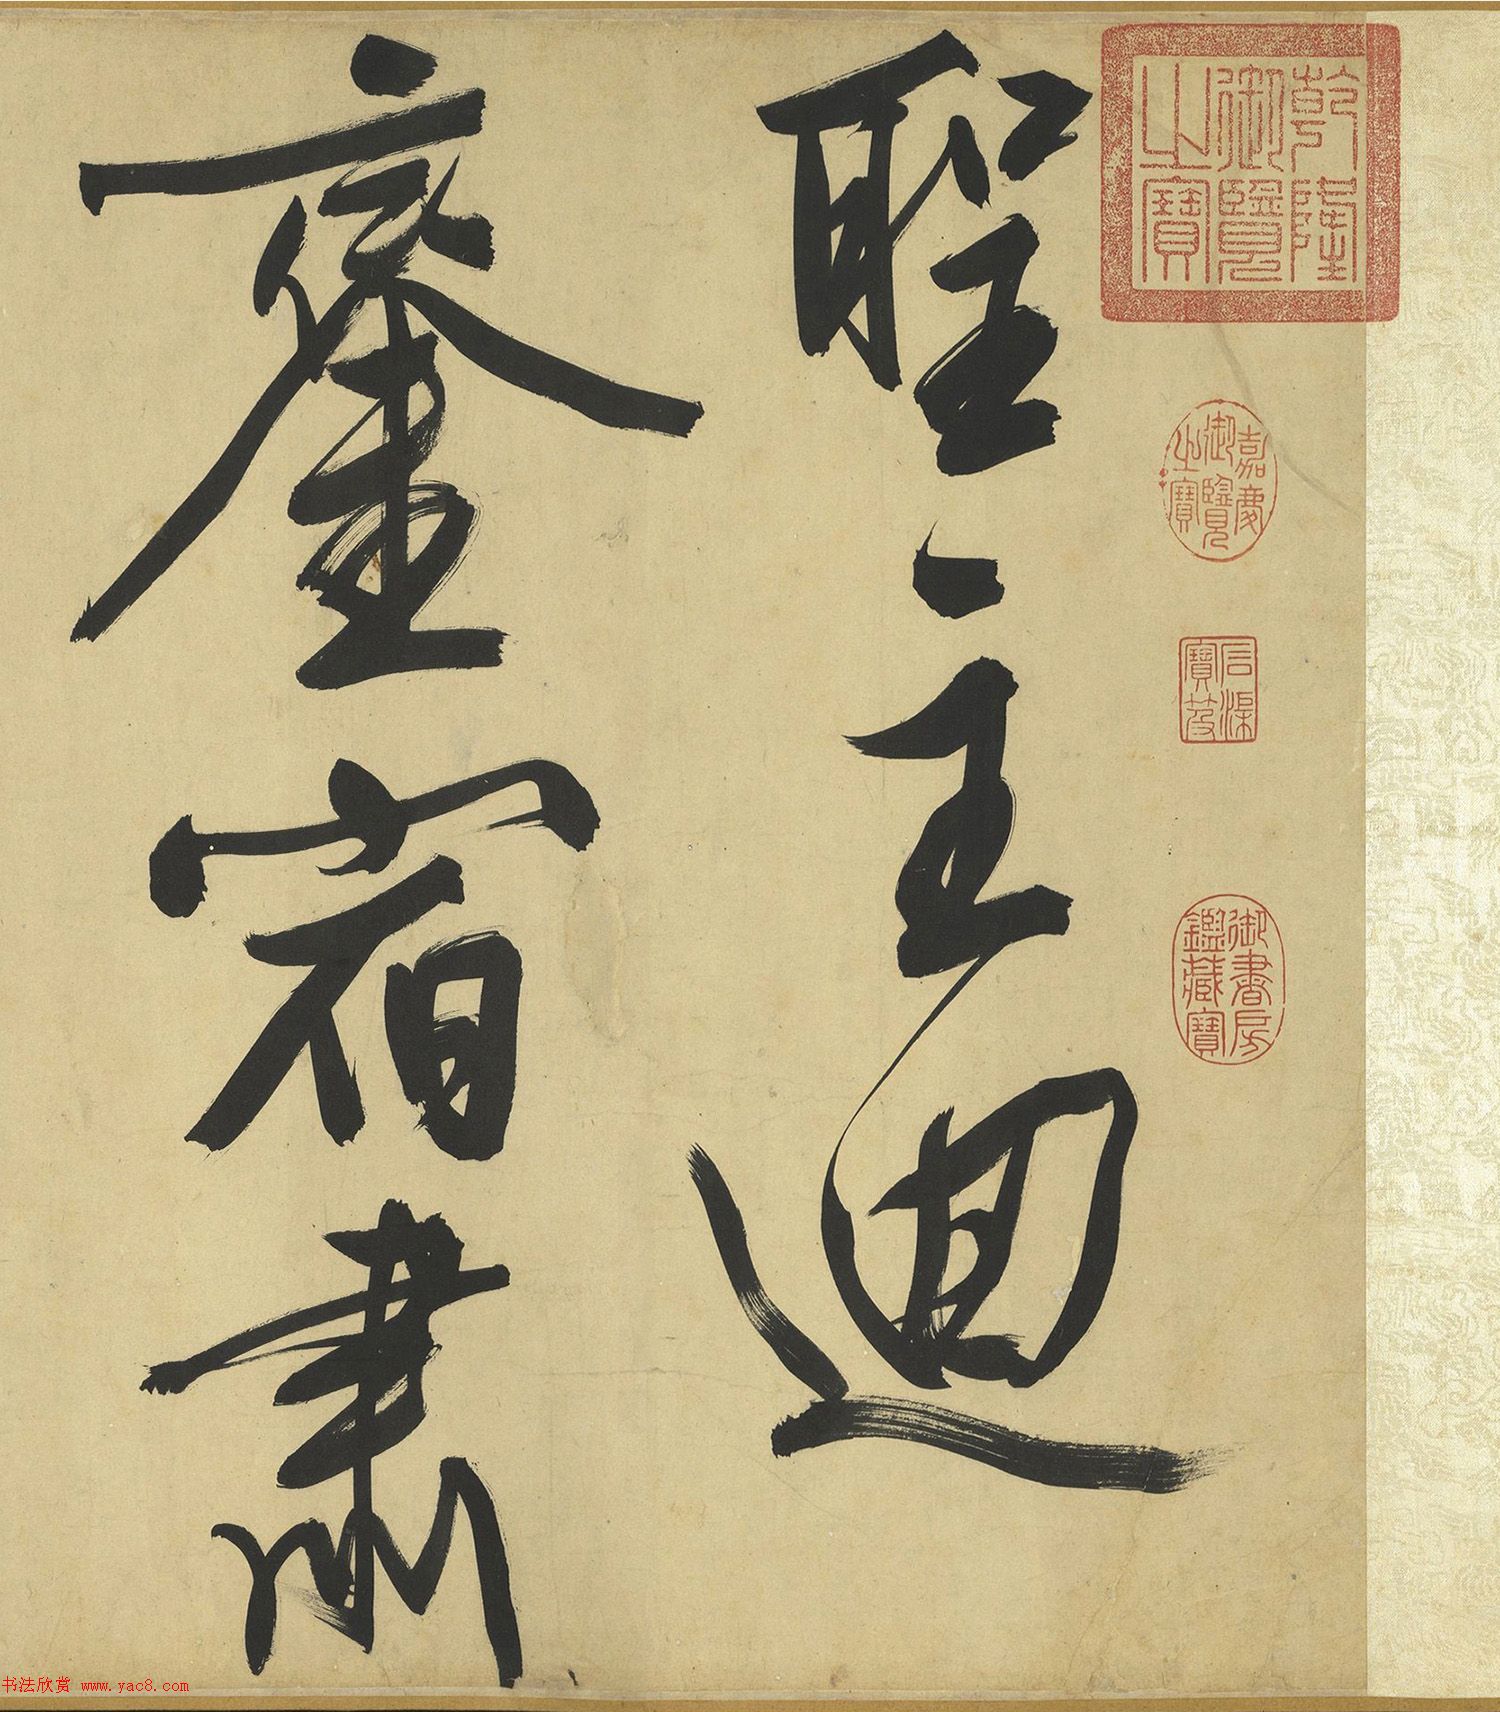 乾隆
御覽
之寶
嘉慶
御覽
之寶
石渠
寶笈
御書房
鑑藏寶
聖主迴
鑾宿肅
书法欣赏 www.yac8.com